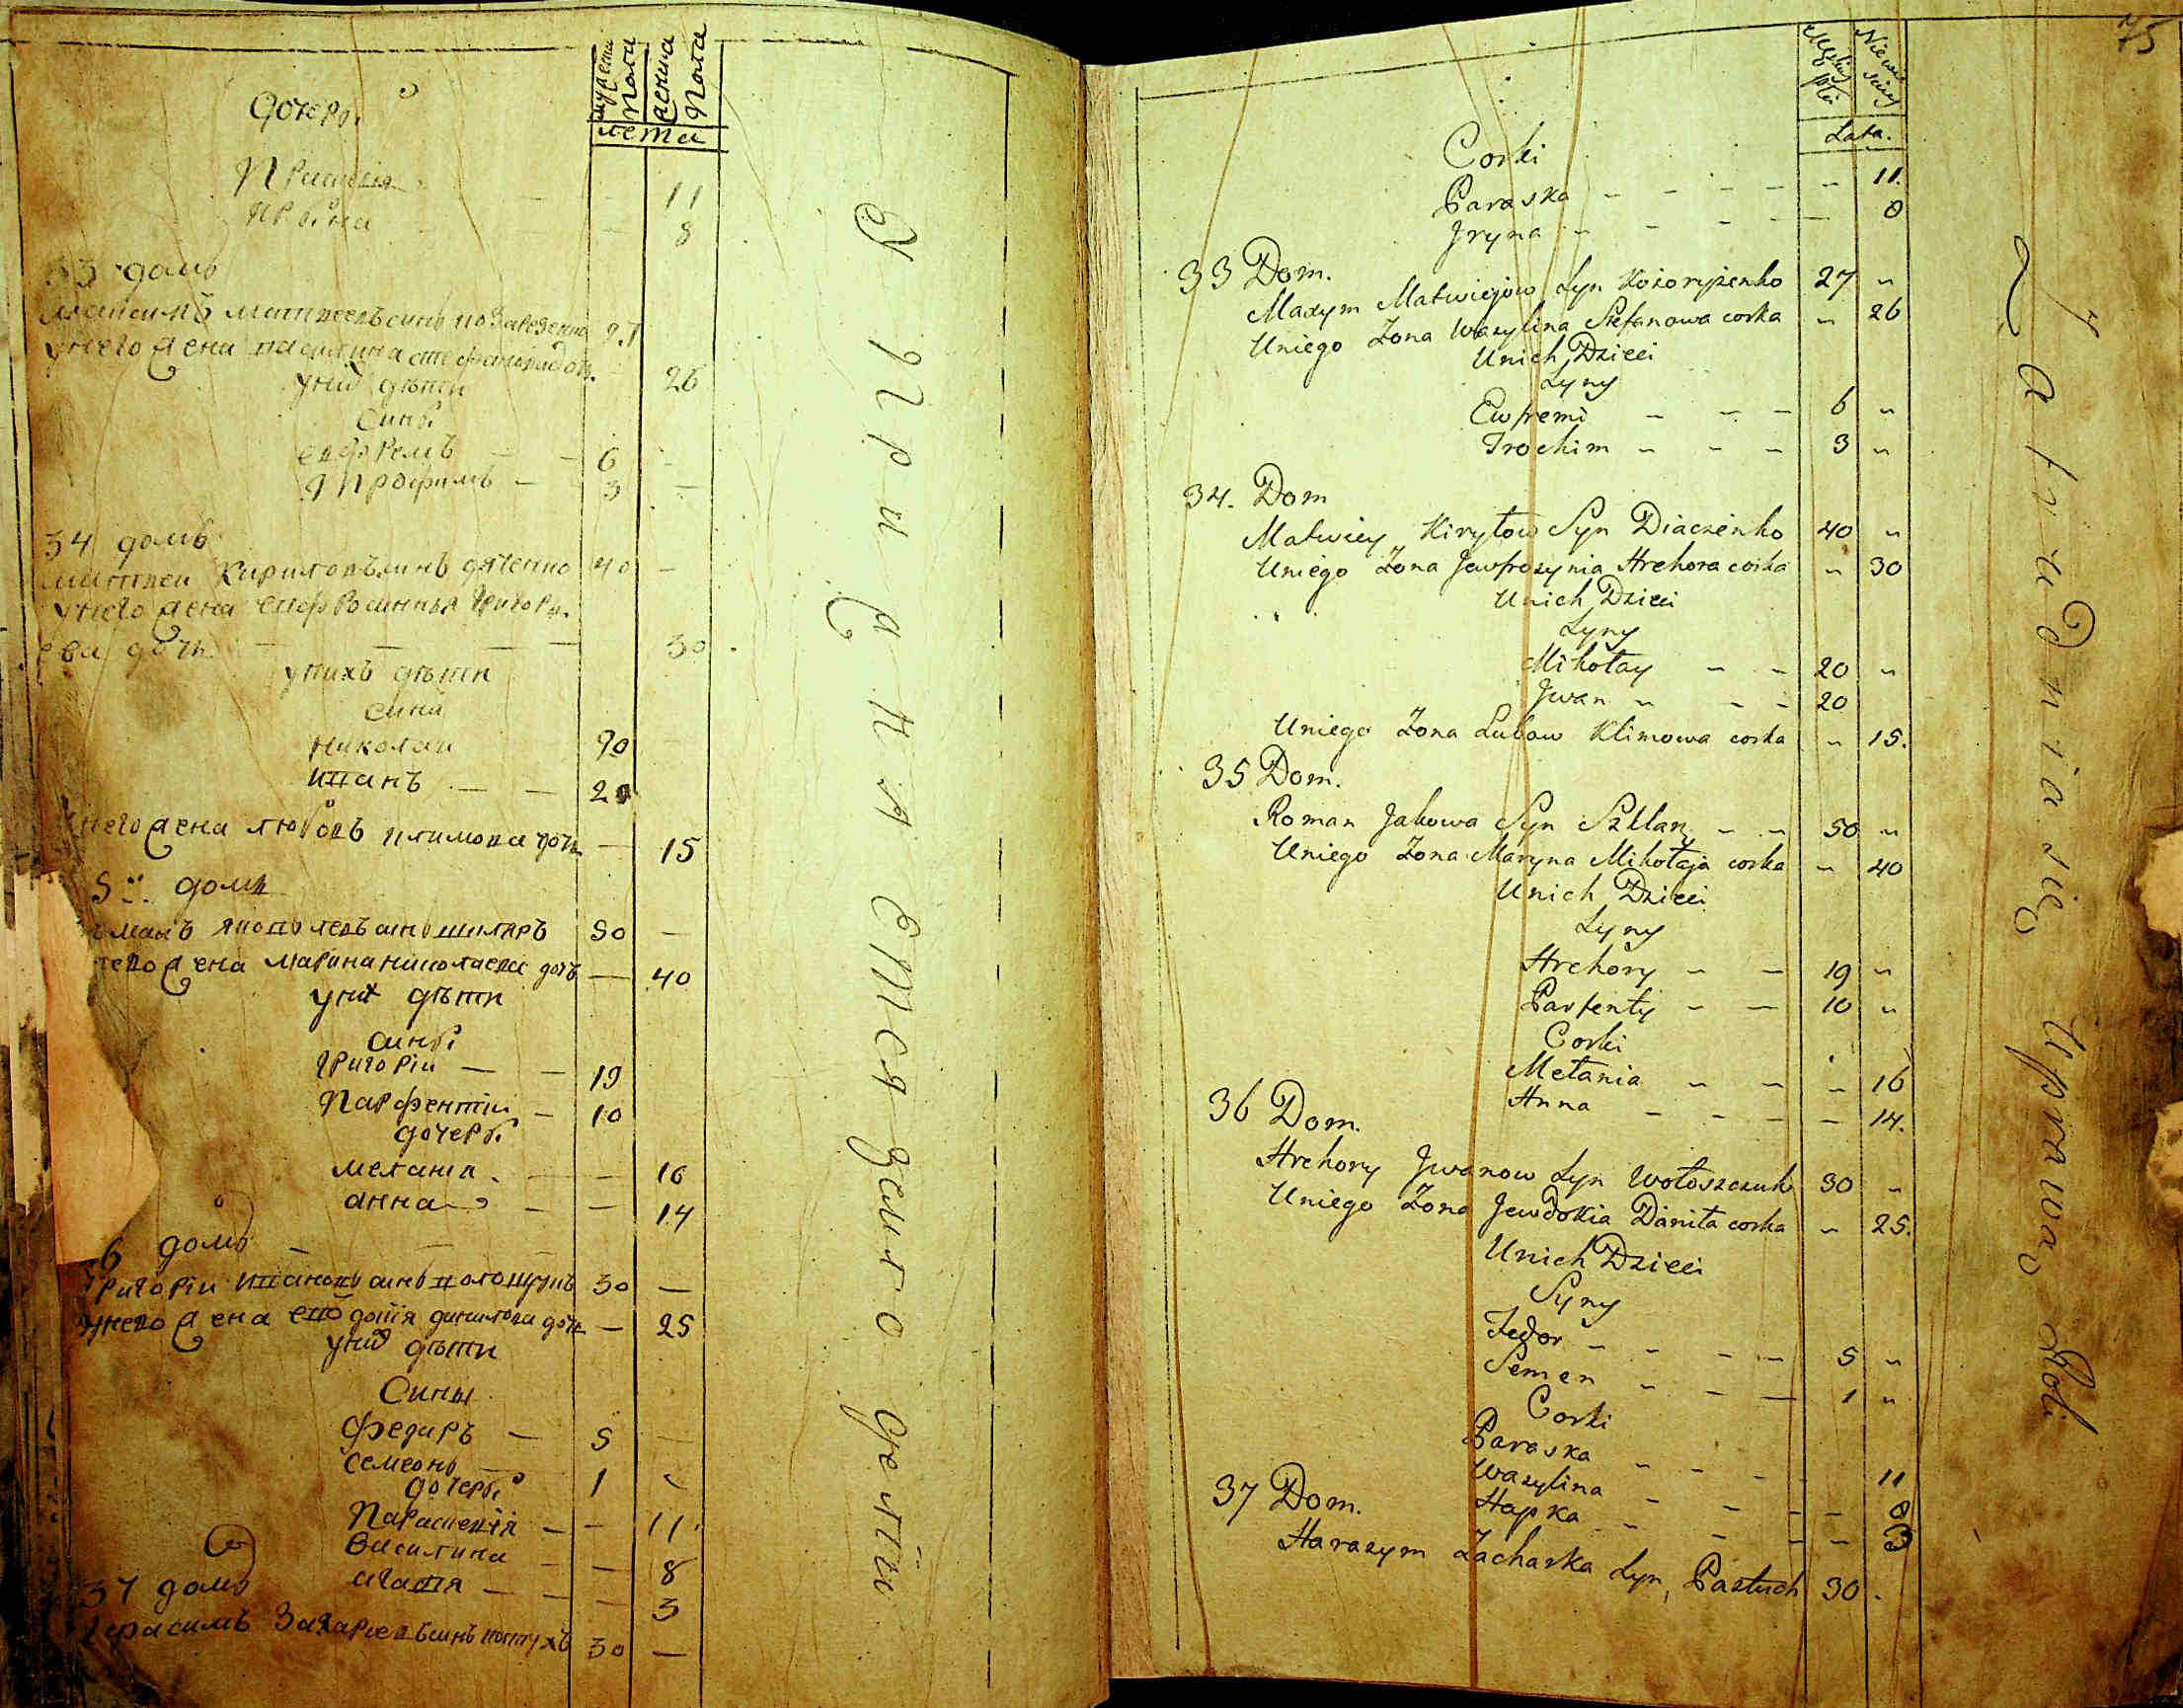 мужеска пола
женска пола
лета
дочери
11
Ирина 8
33 домъ
Максимъ Матвеевъ синъ 27
у него жена Василина Стефанова доч. 26
у них дѣти
сини
Ефремъ — — 6 —
Трофимъ — 3 —
34 домъ
Матвеи Кириловъ синъ Дяченко 40 —
у него жена Евфросинья Григорь
ева дочь — — — — 30
у нихъ дѣти
сини
Николаи 20
Иванъ — — 20
него жена Любовъ Климова дочь — 15
5 домъ
манъ Яковлевъ синъ Шкляръ 50 —
него жена Марина Николаева дочь — 40
у них дѣти
сини
Григорiи — — 19
Парфентiи — 10
дочери
Меланiя — — 16
Анна — — 14
6 домъ
Григорiи Ивановъ синъ Волощукъ 30 —
у него жена Евдокiя Данилова дочь — 25
у них дѣти
Сини
Федиръ — 5 —
Семеонъ — 1
дочери
Параскевiя — — 11
Василина — — 8
Агафiя — — 3
37 домъ
Герасимъ Захарьевъ синъ Пастухъ 30 —
Упражнаются Закло детии
75
Męskiey płci
Niewieściey
Lata.
Corki
Paraska - - - - - 11.
Jryna - - - - - 8
33 Dom.
Maxym Matwiejow Syn Kozoryzenko 27 "
Uniego Zona Wasylina Stefanowa corka " 26
Unich Dzieci
Syny
Ewfremi - - - 6 "
Trochim - - - 3 "
34. Dom
Matwiey Kiryłow Syn Diaczenko 40 "
Uniego Zona Jewfrozynia Hrehora corka " 30
Unich Dzieci
Syny
Mikołay - - 20 "
Jwan - - - 20
Uniego Zona Lubow Klimowa corka " 15.
35 Dom.
Roman Jakowa Syn Szklarz - - 50 "
Uniego Zona Maryna Mikołaja corka " 40
Unich Dzieci
Syny
Hrehory - - 19 "
Parfenty - - 10 "
Corki
Mełania - - - 16
Anna - - - - 14.
36 Dom.
Hrehory Jwanow Syn Wołoszczuk 30 "
Uniego Zona Jewdokia Daniła corka " 25.
Unich Dzieci
Syny
Fedor - - - - 5 "
Semen - - - 1 "
Corki
Paraska - - - - 11
Wasylina - - - - 8
Hapka - - - - 3
37 Dom.
Harasym Zacharka Syn Pastuch 30 .
Zatrudnia się Uprawą Roli